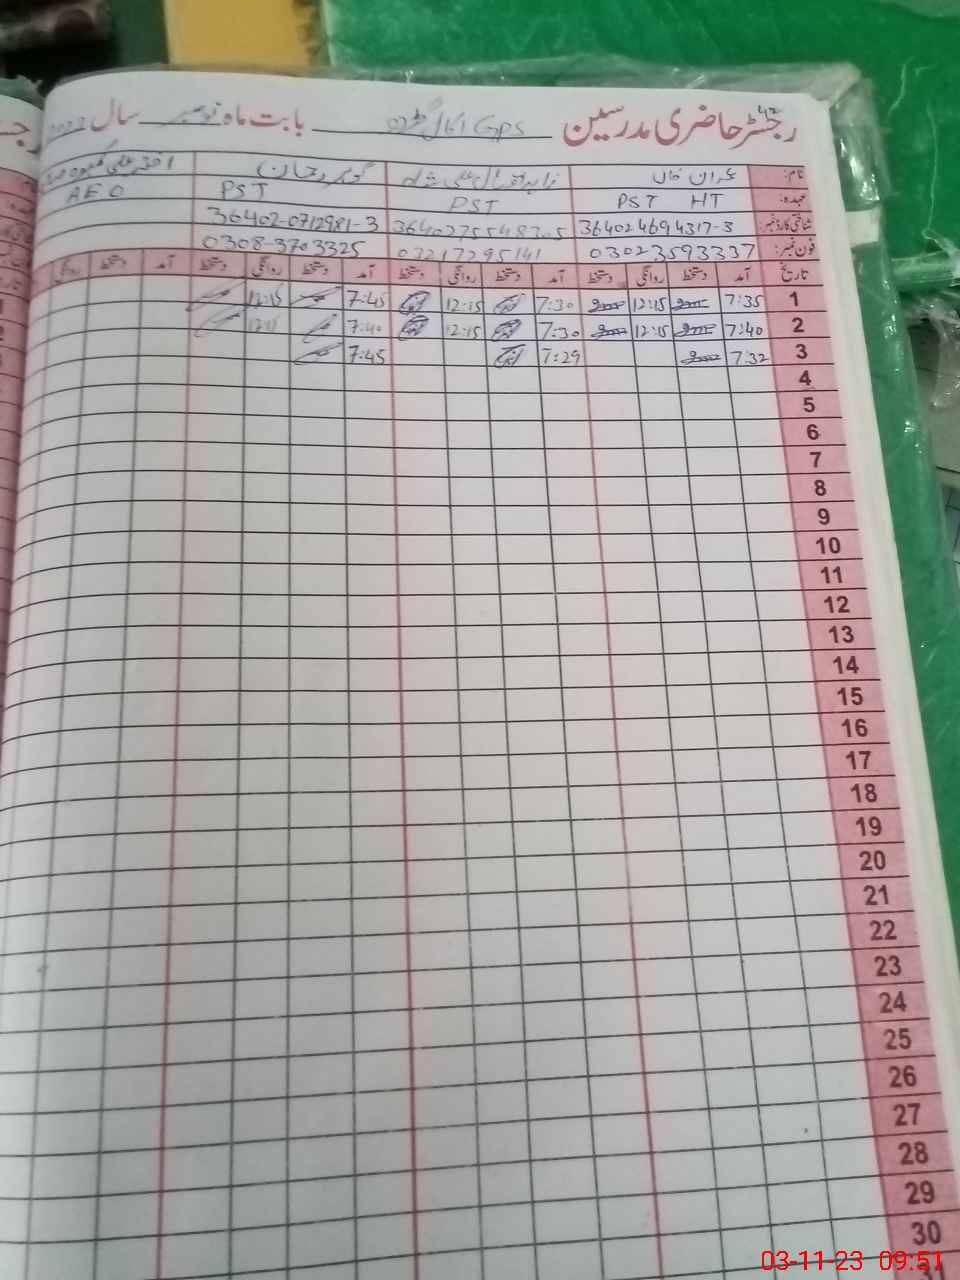 رجسٹر حاضری مدرسین GPS بابت ماہ نومبر سال
نام: عمران خاں گوہر رحمان
عہدہ: PST HT PST PST AEO
شناختی کارڈ نمبر: 364024694317-3 36402-0712981-3
فون نمبر: 03023593337 03217295141 0308-3703325
تاریخ آمد دستخط روانگی دستخط آمد دستخط روانگی دستخط آمد دستخط روانگی دستخط آمد دستخط روانگی
1 7:35 12:15 7:30 12:15 7:45 12:15
2 7:40 12:15 7:30 12:15 7:40 12:15
3 7:32 7:29 7:45
4
5
6
7
8
9
10
11
12
13
14
15
16
17
18
19
20
21
22
23
24
25
26
27
28
29
30
31
03-11-23 09:51